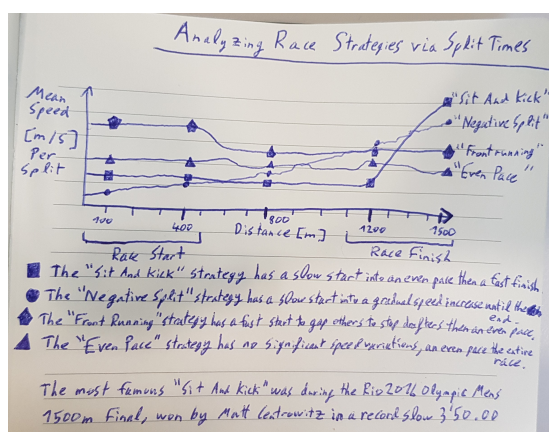 Analyzing Race Strategies via Split Times
Mean
Speed
[m/s]
Per
Split
"Sit And Kick"
"Negative Split"
"Front Running"
"Even Pace"
100 400 800 1200 1500
Distance [m]
Race Start Race Finish
The "Sit And Kick" strategy has a slow start into an even pace then a fast finish
The "Negative Split" strategy has a slow start into a gradual speed increase until the end.
The "Front Running" strategy has a fast start to gap others to stop drafters then an even pace.
The "Even Pace" strategy has no significant speed variations, an even pace the entire race.
The most famous "Sit And Kick" was during the Rio 2016 Olympic Mens
1500m Final, won by Matt Centrowitz in a record slow 3'50.00